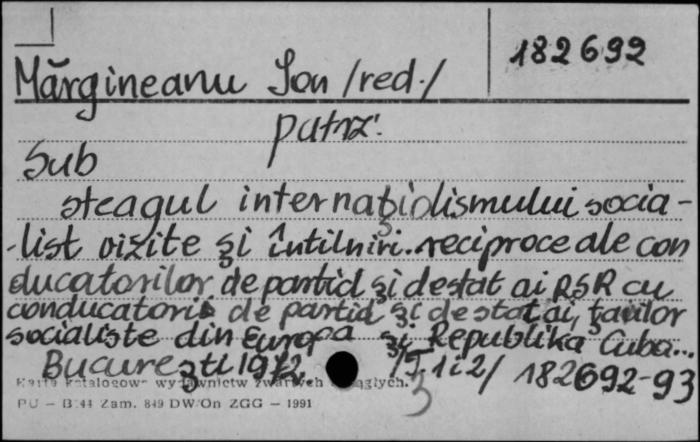 182692
Mărgineanu Ion /red./
patrz:
Sub
steagul internaţiolismului socia-
-list vizite şi întîlniri reciproce ale con
ducatorilor de partid şi destat ai RSR cu
conducatorii de partid şi de stat ai, ţarilor
socialiste din Europa şi Republika Cuba...
Bucureşti 1972 /T. 1i2/ 182692-93
3
Karta katalogowa wydawnictw zwartych i ciągłych.
PU – B 44 Zam. 849 DW/On ZGG – 1991